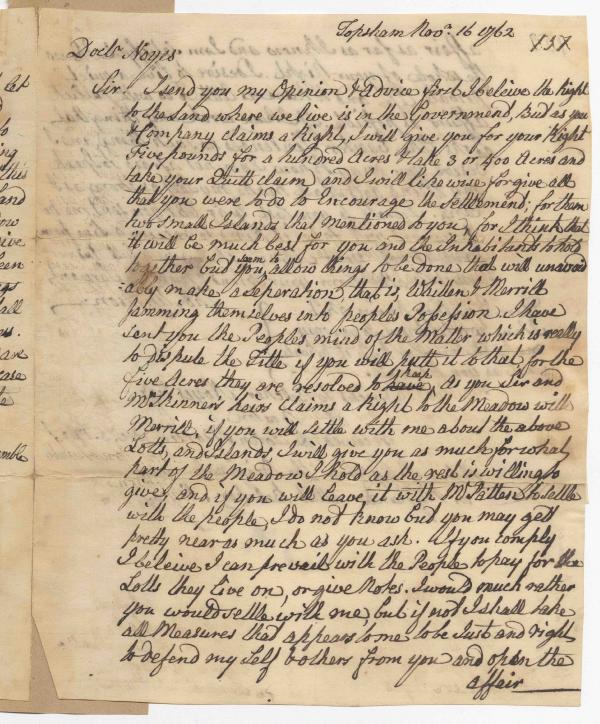 Topsham Novr. 16 1762
157
Doctr. Noyes
Sir I send you my Opinion & advice first I beleive the Right
to the Land where we live is in the Government, But as you
& Company claims a Right, I will give you for your Right
Five pounds for a hundred Acres & take 3 or 400 Acres and
take your Quitt claim and I will likewise forgive all
that you were to do to Encourage the Settlemend; for them
two small Islands that Mentioned to you, for I think that
it will be much best for you and the Inhabitands to hold
together but you seem to allow things to be done that will unavoid
=ably make a seperation, that is, Whitten & Merrill
Jamming themselves into peoples Posession. I have
sent you the Peoples mind of the Matter which is really
to dispute the Title if you will putt it to that, for the
five Acres they are resolved to have keep, As you Sir and
Mr Skinner's heirs claims a Right to the Meadow with
Merrill, if you will Settle with me about the above
Lotts, and Islands, I will give you as much for what
part of the Meadow I hold as the rest is willing to
give, and if you will leave it with Mr Patten to settle
with the people, I do not know but you may get
pretty near as much as you ask. If you comply
I beleive I can prevail with the People to pay for the
Lotts they live on, or give Notes. I would much rather
you would settle with me, but if not I shall take
all Measures that appears to me to be Just and right
to defend my Self & others from you and open the
affair